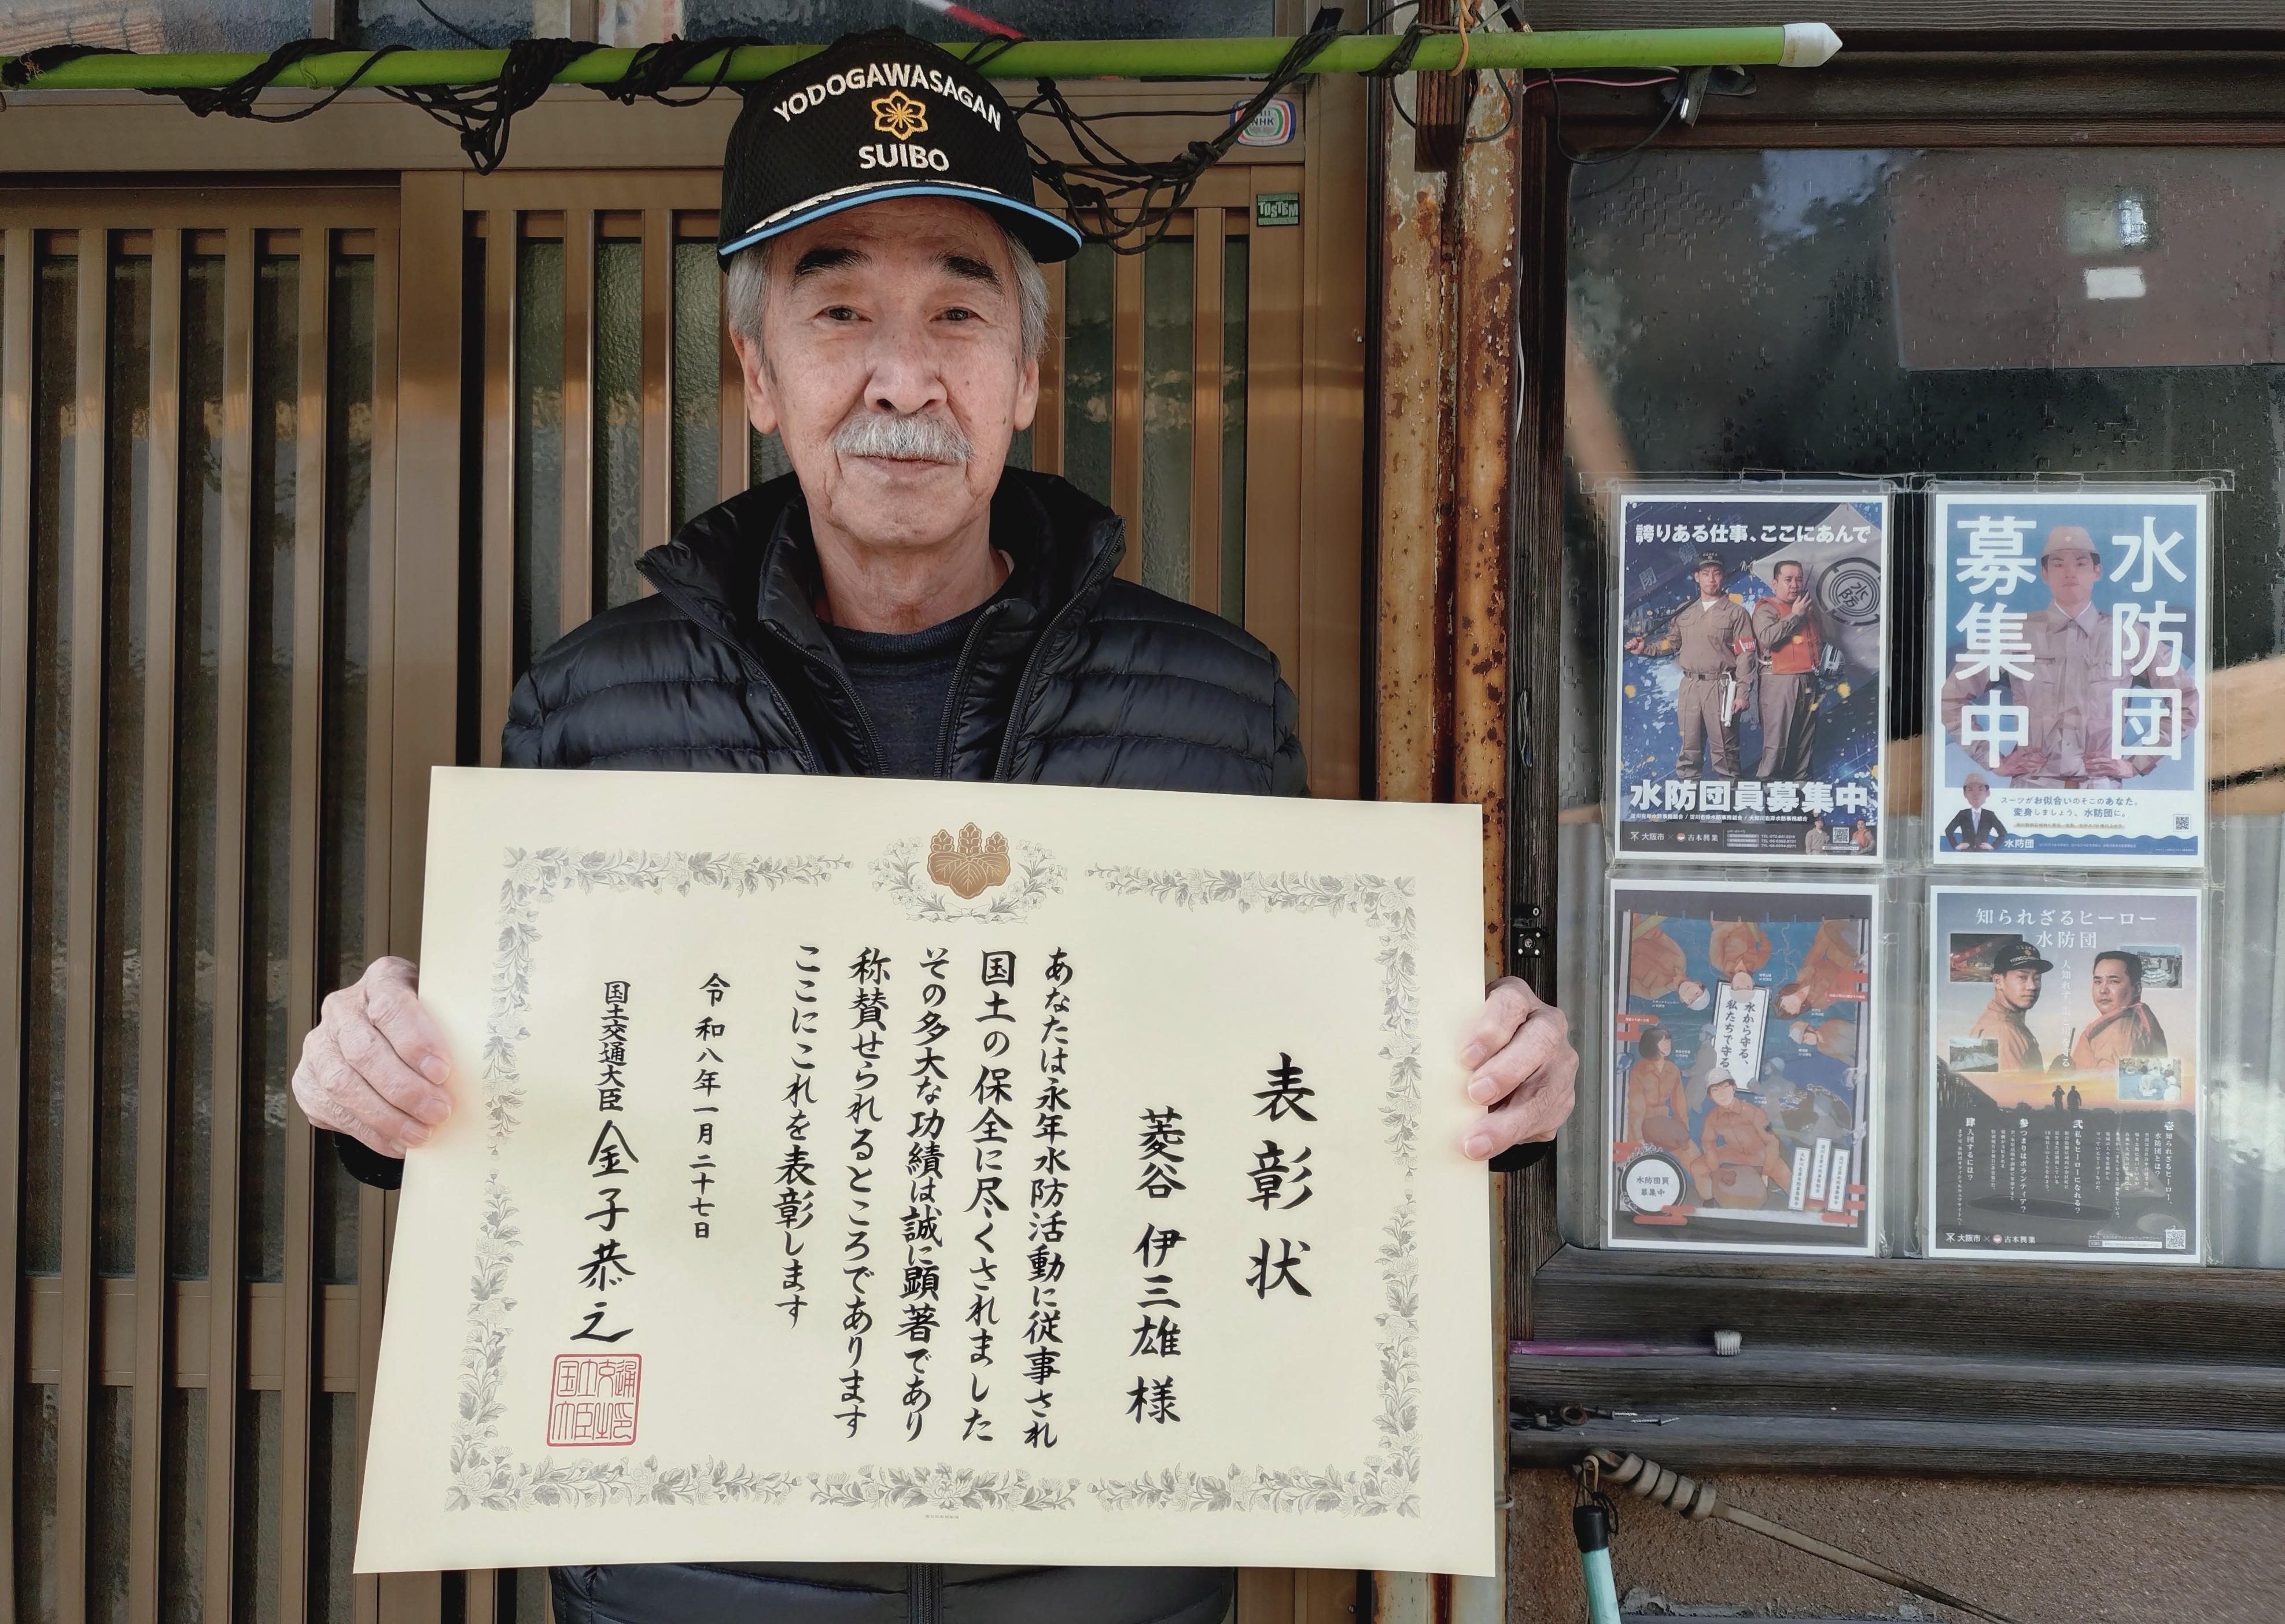 YODOGAWASAGAN
SUIBO
NHK
TOSTEM
表彰状
菱谷 伊三雄 様
あなたは永年水防活動に従事され
国土の保全に尽くされました
その多大な功績は誠に顕著であり
称賛せられるところであります
ここにこれを表彰します
令和八年一月二十七日
国土交通大臣 金子恭之
誇りある仕事、ここにあんで
水防団員募集中
大阪市 × 吉本興業
水防団
募集中
スーツがお似合いのそこのあなた。
変身しましょう、水防団に。
水防団
水から守る、
私たちで守る
水防団員
募集中
知られざるヒーロー
水防団
壱 知られざるヒーロー、
水防団とは?
弐 私もヒーローになれる?
参 つまりはボランティア?
肆 入団するには?
大阪市 × 吉本興業